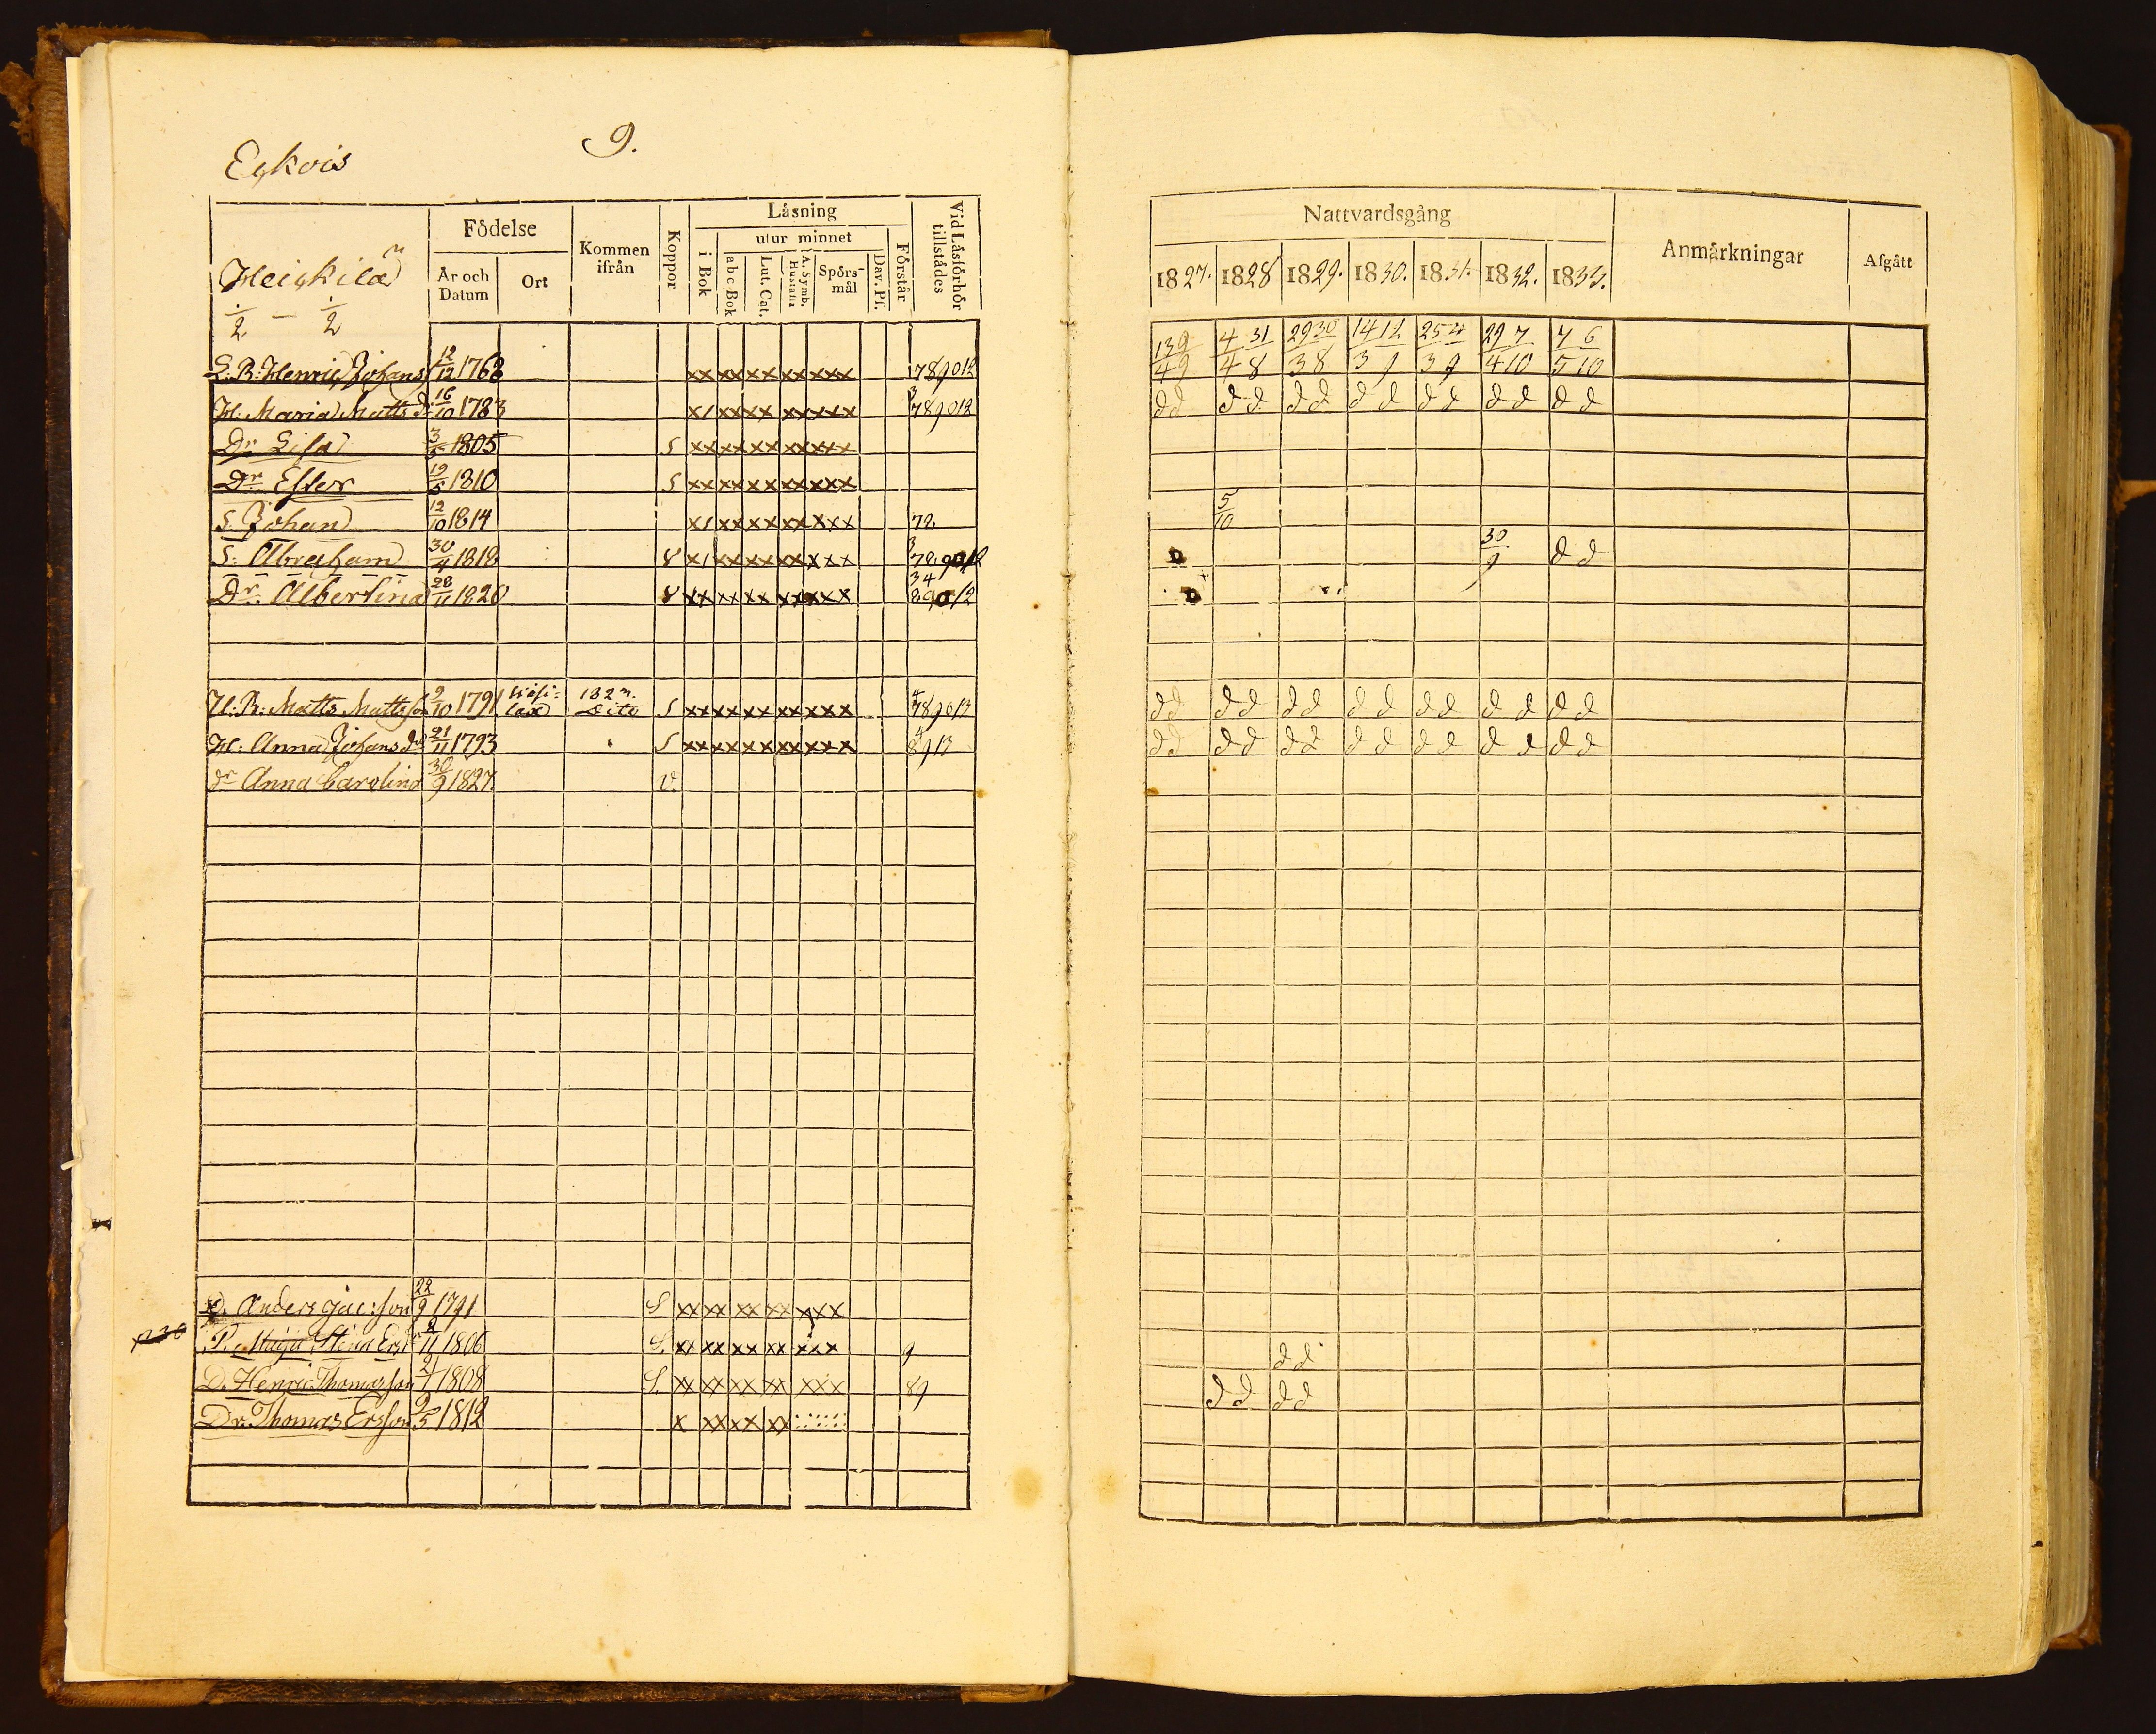 9.
Eykois
Heickilä
1/2 - 1/2
Födelse
År och Datum
Ort
Kommen ifrån
Koppor
Läsning
i Bok
utur minnet
abc-Bok
Lut. Cat.
A. Symb. Hustafla
Spörsmål
Dav. Ps.
Förstår
Vid Läsförhör tillstädes
L. B: Henric Johanss 12/12 1768 xx xx xx xx xxx 789012
H. Maria Matts dr 16/10 1783 x/ xx xx xx xxx 3 789012
Dr Lisa 3/5 1805 S xx xx xx xx xxx
Dr Ester 19/5 1810 S xx xx xx xx xxx
S. Johan 12/10 1814 x/ xx xx xx xxx 78
S: Abraham 30/4 1818 x/ xx xx xx xxx 3 789012
Dr. Albertina 28/11 1820 xx xx xx xx xxx 34 89012
H. B: Matts Mattsson 9/10 1791 1827. Dito S xx xx xx xx xxx 4 789013
H: Anna Johans dr 21/11 1793 S xx xx xx xx xxx 4 8913
dr Anna Carolina 30/9 1827. v.
D. Anders Jac:son 22/9 1791 S xx xx xx xx xxx
P. Maija Stina Ersdr 2/11 1806 S. xx xx xx xx xxx 9
D. Henric Thomasson 21/1 1808 S. xx xx xx xx xxx 89
Dr. Thomas Ersson 2/5 1812 x xx xx xx
Nattvardsgång
Anmärkningar
Afgått
1827. 1828 1829. 1830. 1831. 1832. 1833.
13 9 4 31 29 30 14 12 25 4 29 7 7 6
4 9 4 8 3 8 3 9 3 9 4 10 5 10
d d d d d d d d d d d d d d
5/10
30/9 d d
d d d d d d d d d d d d d d
d d d d d d d d d d d d d d
d d
d d d d